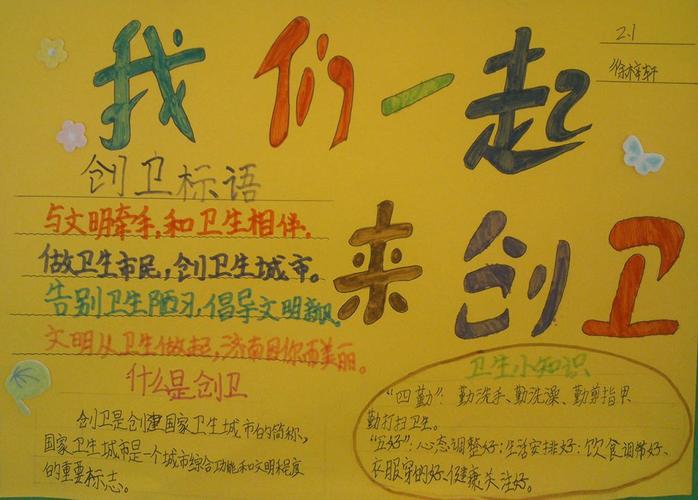 我们一起
2.1
徐梓轩
来创卫
创卫标语
与文明牵手,和卫生相伴.
做卫生市民,创卫生城市。
告别卫生陋习,倡导文明新风.
文明从卫生做起,济南因你而美丽。
什么是创卫
创卫是创建国家卫生城市的简称、
国家卫生城市是一个城市综合功能和文明程度
的重要标志。
卫生小知识
"四勤": 勤洗手、勤洗澡、勤剪指甲
勤打扫卫生。
"五好":心态调整好;生活安排好;饮食调常好、
衣服穿的好、健康关注好。